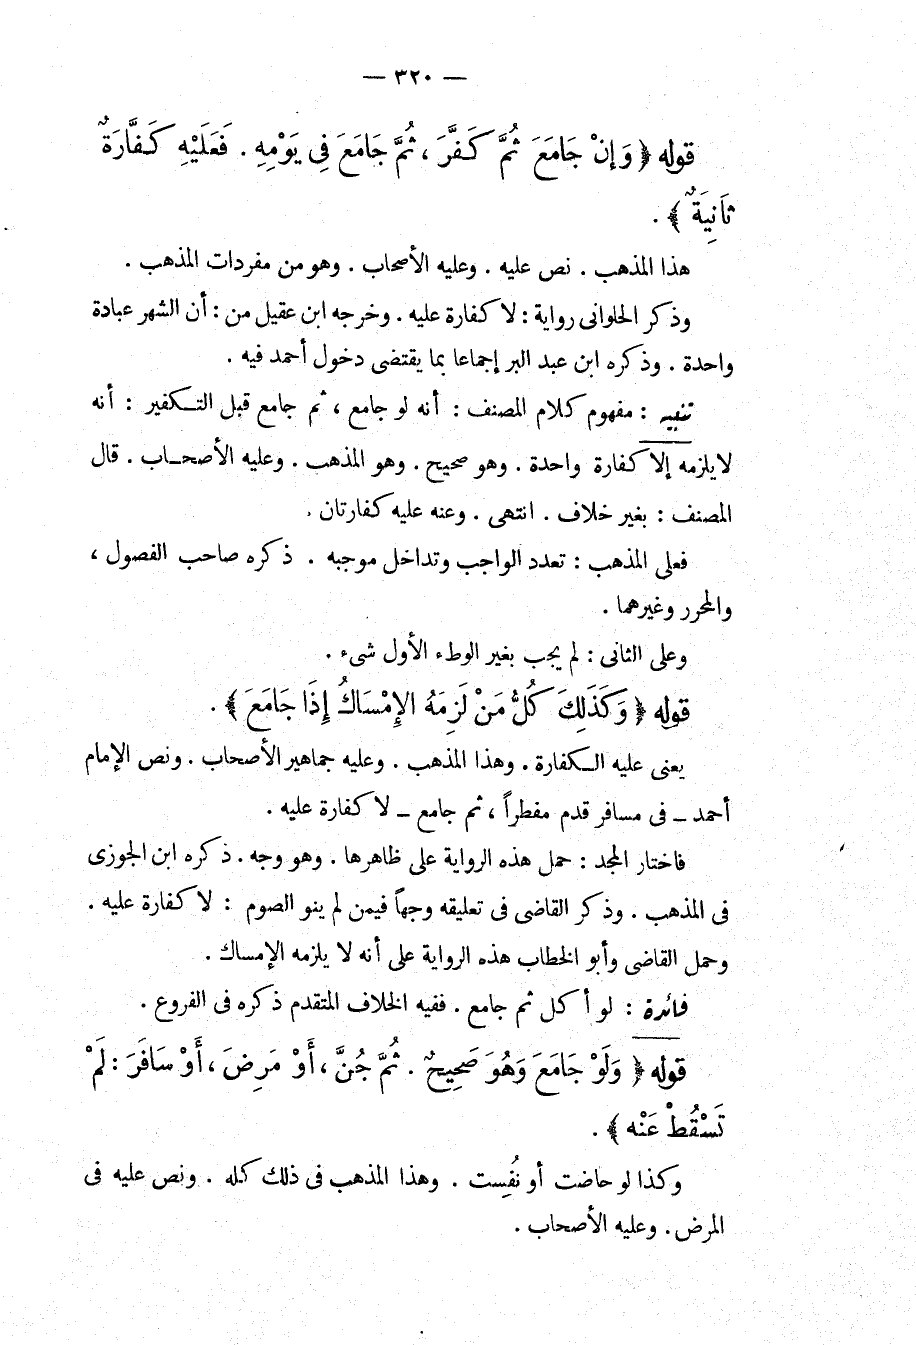 — ٣٢٠ —
قوله ﴿ وَإِنْ جَامَعَ ثُمَّ كَفَّرَ ، ثُمَّ جَامَعَ فِي يَوْمِهِ . فَعَلَيْهِ كَفَّارَةٌ
ثَانِيَةٌ ﴾ .
هذا المذهب . نص عليه . وعليه الأصحاب . وهو من مفردات المذهب .
وذكر الحلوانى رواية : لا كفارة عليه . وخرجه ابن عقيل من : أن الشهر عبادة
واحدة . وذكره ابن عبد البر إجماعا بما يقتضى دخول أحمد فيه .
تنبيه : مفهوم كلام المصنف : أنه لو جامع ، ثم جامع قبل التكفير : أنه
لا يلزمه إلا كفارة واحدة . وهو صحيح . وهو المذهب . وعليه الأصحاب . قال
المصنف : بغير خلاف . انتهى . وعنه عليه كفارتان .
فعلى المذهب : تعدد الواجب وتداخل موجبه . ذكره صاحب الفصول ،
والمحرر وغيرهما .
وعلى الثانى : لم يجب بغير الوطء الأول شىء .
قوله ﴿ وَكَذَلِكَ كُلُّ مَنْ لَزِمَهُ الإِمْسَاكُ إِذَا جَامَعَ ﴾ .
يعنى عليه الكفارة . وهذا المذهب . وعليه جماهير الأصحاب . ونص الإمام
أحمد ــ فى مسافر قدم مفطراً ، ثم جامع ــ لا كفارة عليه .
فاختار المجد : حمل هذه الرواية على ظاهرها . وهو وجه . ذكره ابن الجوزى
فى المذهب . وذكر القاضى فى تعليقه وجهاً فيمن لم ينو الصوم : لا كفارة عليه .
وحمل القاضى وأبو الخطاب هذه الرواية على أنه لا يلزمه الإمساك .
فائدة : لو أكل ثم جامع . ففيه الخلاف المتقدم ذكره فى الفروع .
قوله ﴿ وَلَوْ جَامَعَ وَهُوَ صَحِيحٌ . ثُمَّ جُنَّ ، أَوْ مَرِضَ ، أَوْ سَافَرَ : لَمْ
تَسْقُطْ عَنْه ﴾ .
وكذا لو حاضت أو نُفِست . وهذا المذهب فى ذلك كله . ونص عليه فى
المرض . وعليه الأصحاب .